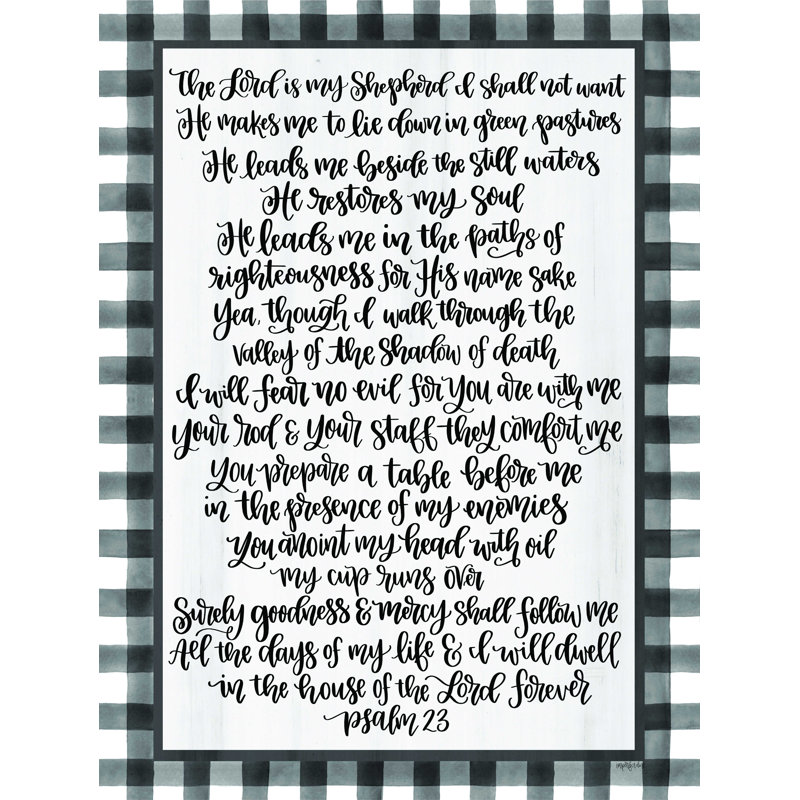 The Lord is my Shepherd I shall not want
He makes me to lie down in green pastures
He leads me beside the still waters
He restores my soul
He leads me in the paths of
righteousness for His name sake
Yea, though I walk through the
valley of the shadow of death
I will fear no evil for You are with me
Your rod & Your staff they comfort me
You prepare a table before me
in the presence of my enemies
You anoint my head with oil
my cup runs over
Surely goodness & mercy shall follow me
All the days of my life & I will dwell
in the house of the Lord forever
psalm 23